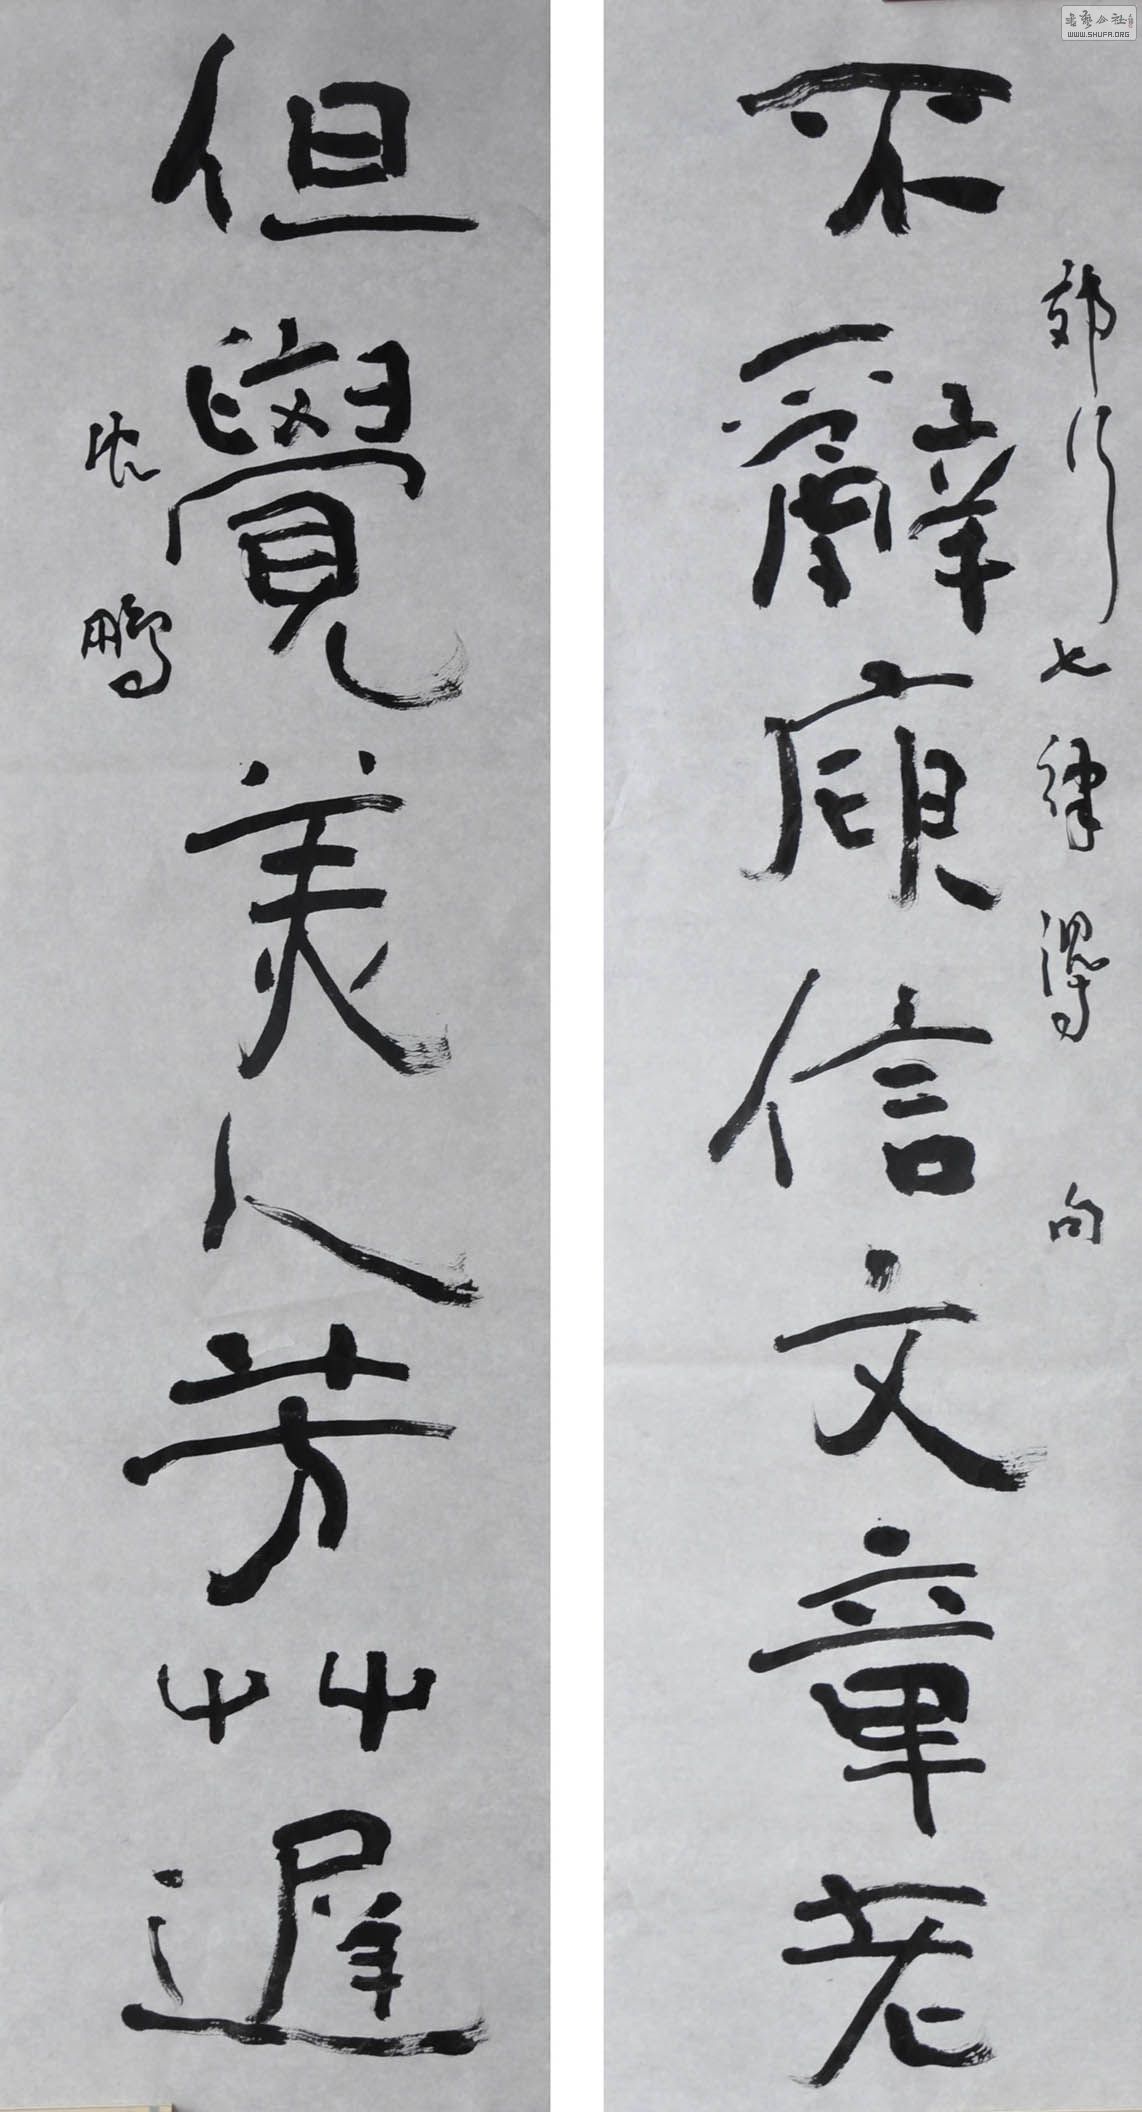 不辭庾信文章老
郊行七律得句
但覺美人芳艸遲
沈鵬
書藝公社
WWW.SHUFA.ORG